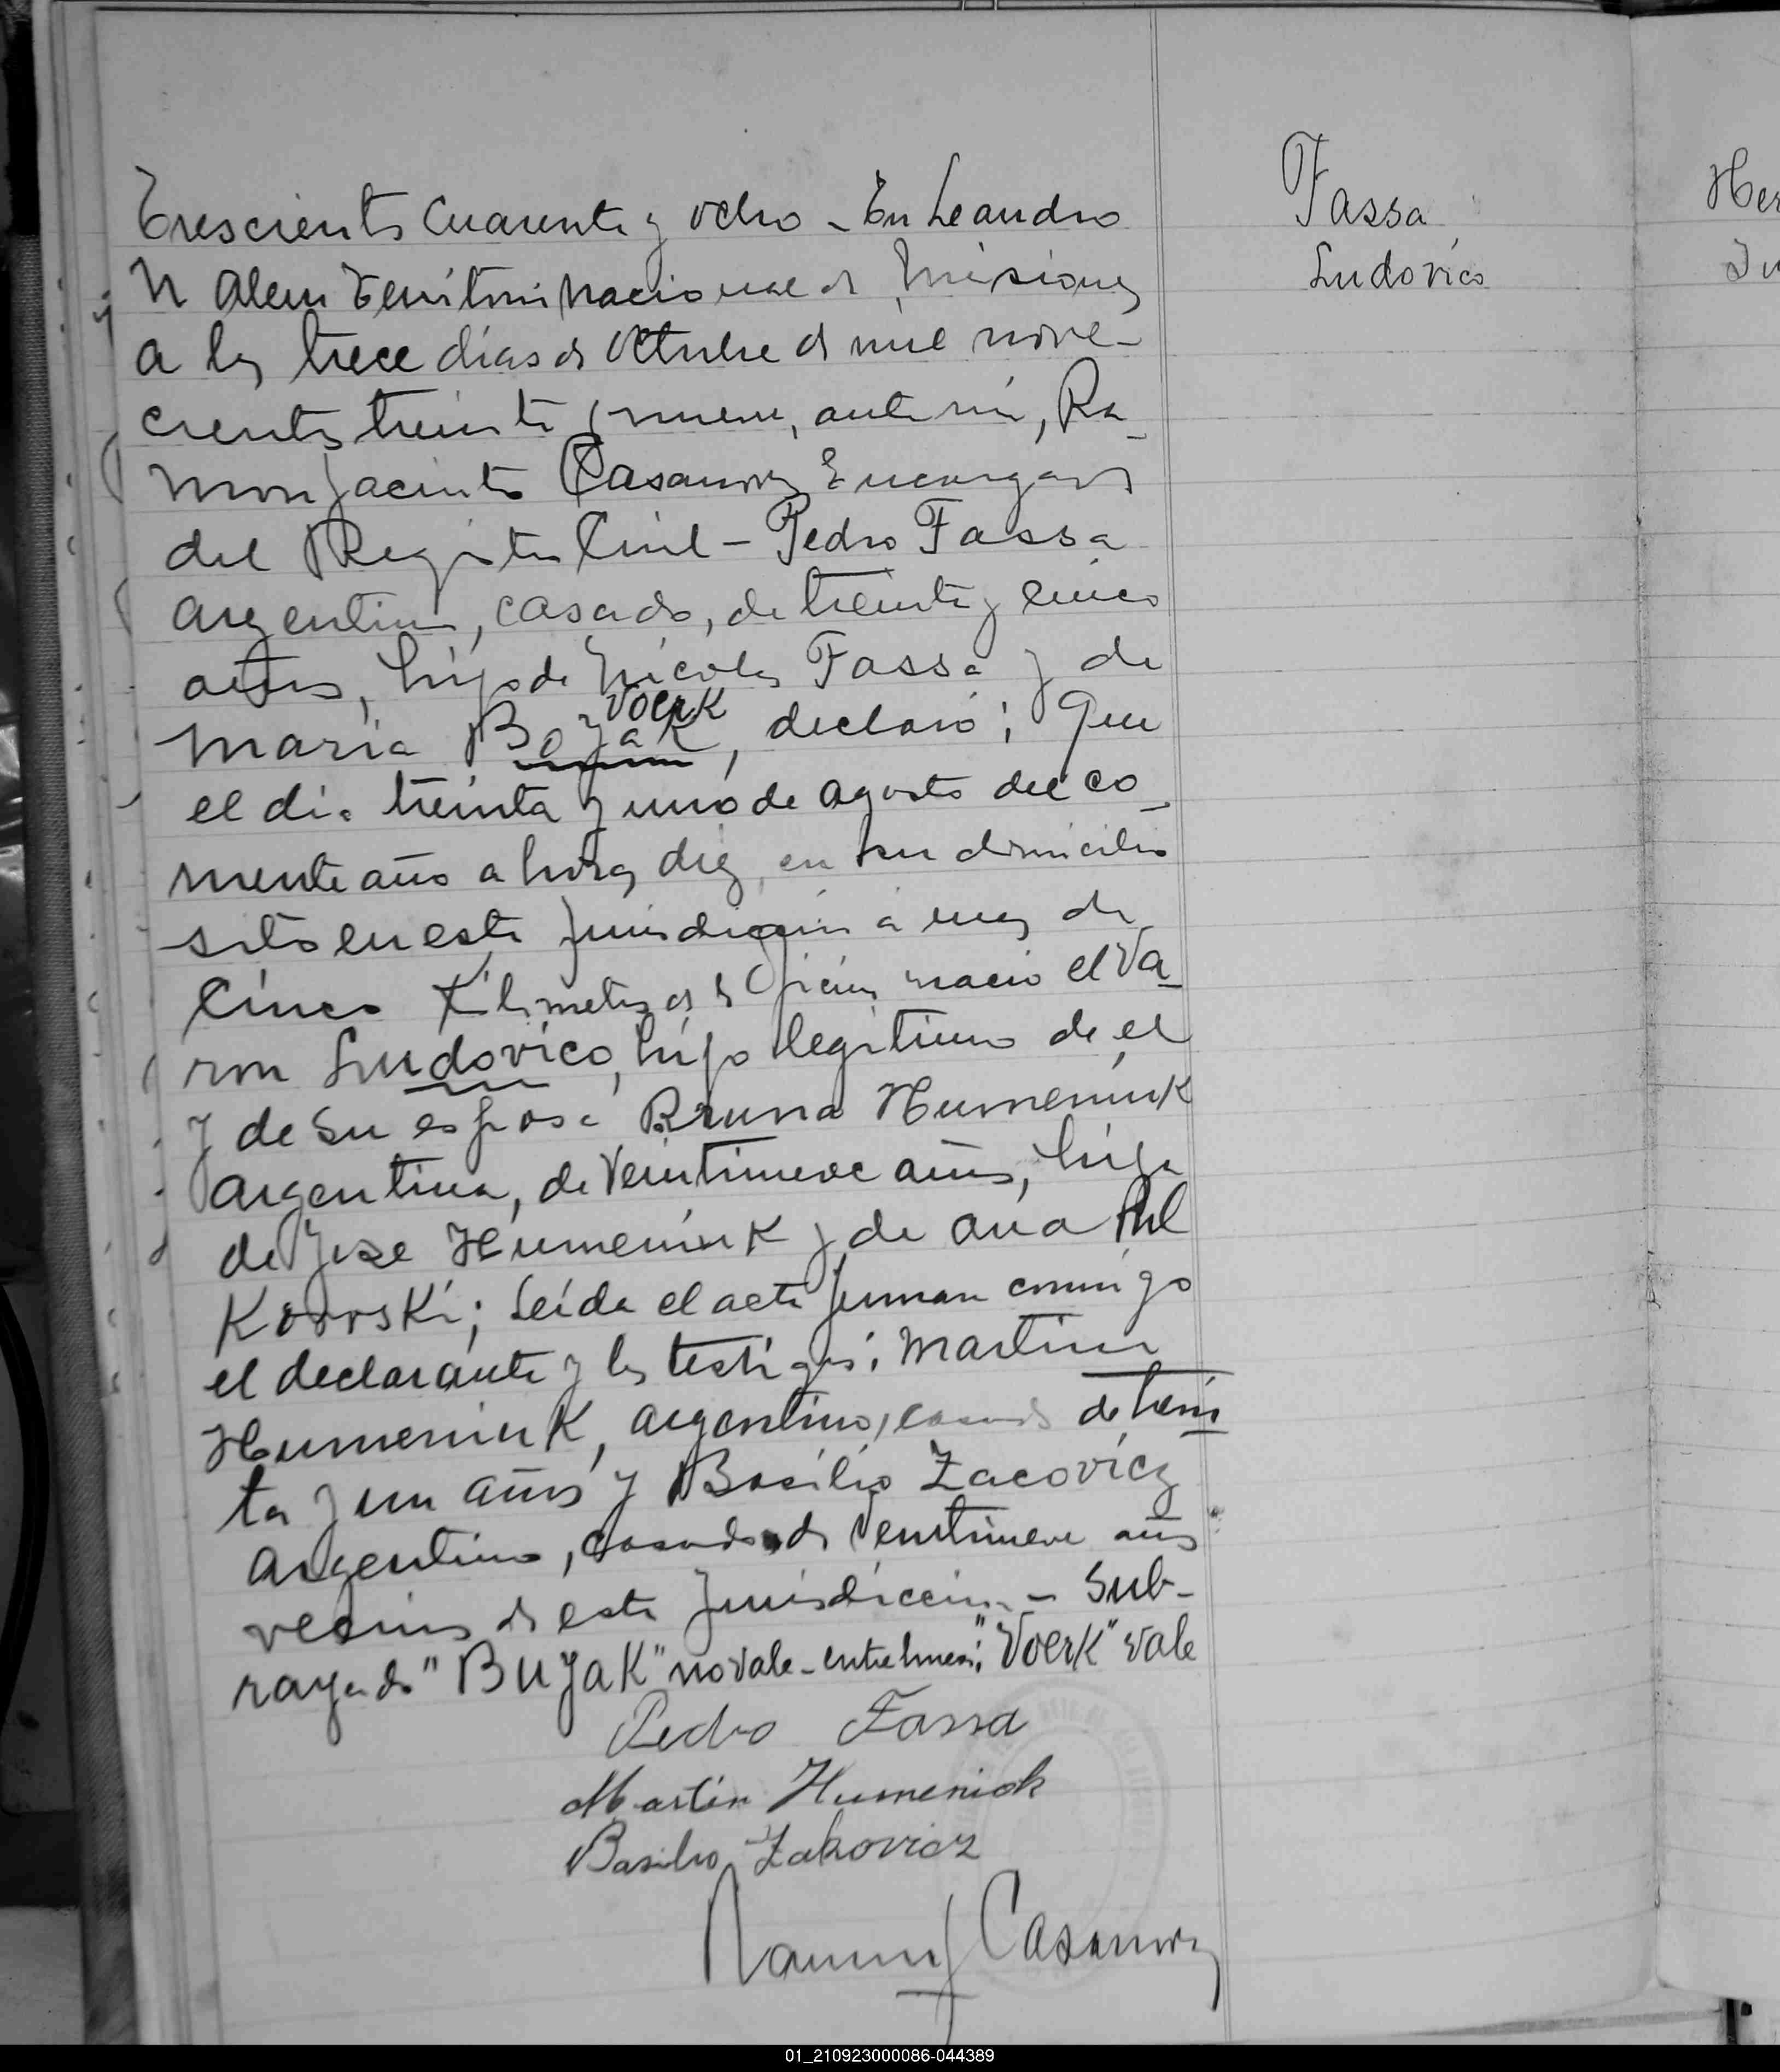 Trescientos Cuarenta y ocho - En Leandro
N Alem Territorio Nacional de Misiones
a los trece días de Octubre de mil nove-
cientos treinta y nueve, ante mí, Ra-
mon Jacinto Casanova Encargado
del Registro Civil - Pedro Fassa
argentino, casado, de treinta y cinco
años, hijo de Nicolas Fassa y de
Voerk
maria Boyak, declaró: Que
el dia treinta y uno de agosto del co-
rriente año a horas diez, en su domicilio
sito en esta jurisdiccion a mas de
Cinco Kilometros de la Oficina nacio el Va-
ron Ludovico, hijo legitimo de el
y de su esposa Bruna Humeniuk
argentina, de veintinueve años, hija
de Jose Humeniuk y de ana
Kowski; Leida el acta firman conmigo
el declarante y los testigos: Martin
Humeniuk, argentino, casado de trein-
ta y un años y Basilio Zacovicz
argentino, casado, de Veintinueve años
vecinos de esta Jurisdiccion - Sub-
rayado "BUJAK" no vale - entrelineas: "Voerk" vale
Pedro Fassa
Martin Humeniok
Basilio Zakovicz
Ramon J Casanova
Fassa
Ludovico
Her
01_210923000086-044389